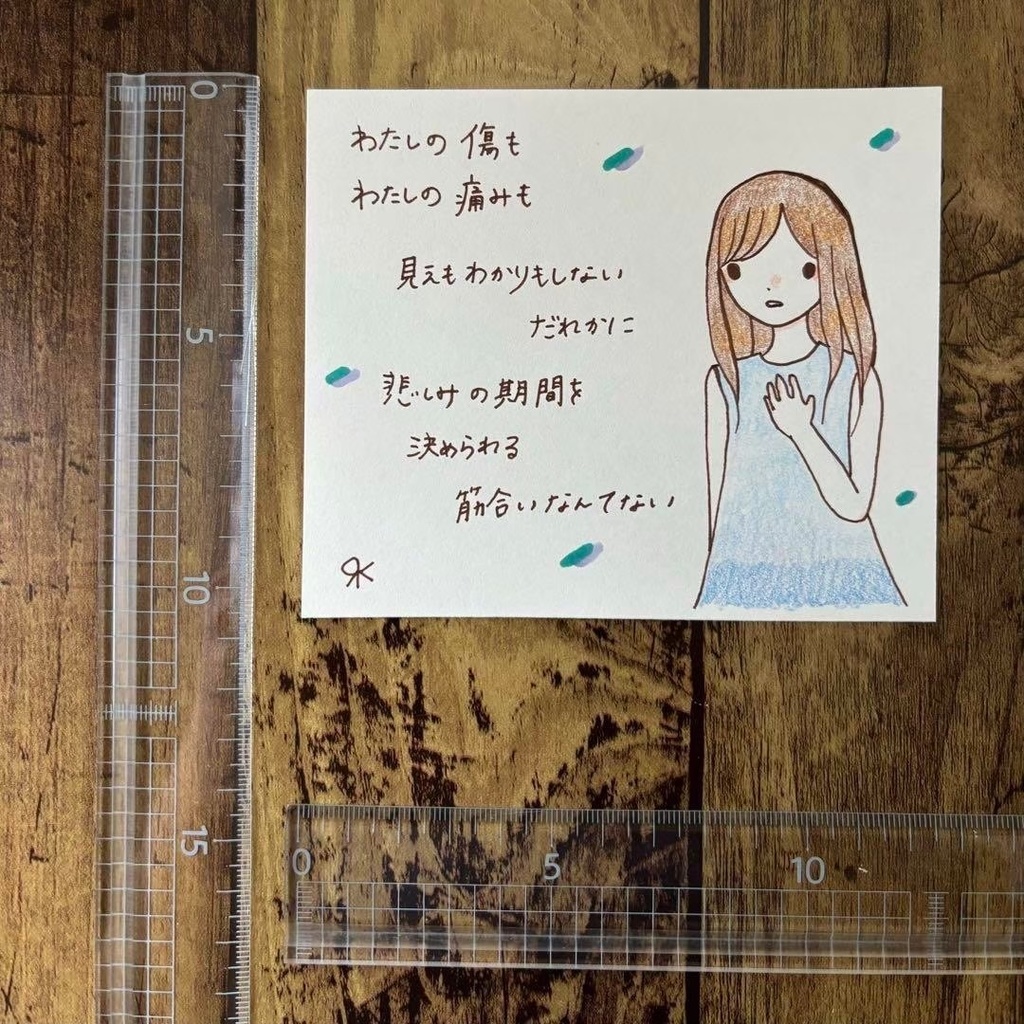 わたしの 傷も
わたしの 痛みも
見えもわかりもしない
だれかに
悲しみの期間を
決められる
筋合いなんてない
0
5
10
15
0
5
10